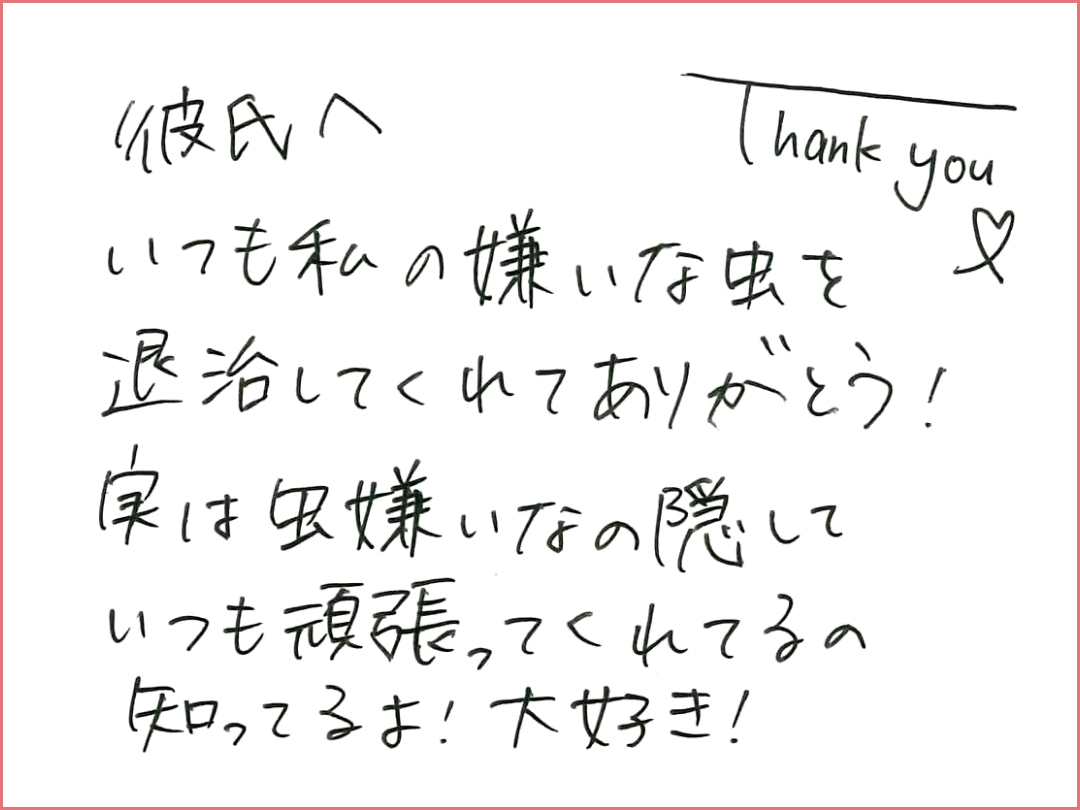 彼氏へ
Thank you
いつも私の嫌いな虫を
退治してくれてありがとう!
実は虫嫌いなの隠して
いつも頑張ってくれてるの
知ってるよ!大好き!